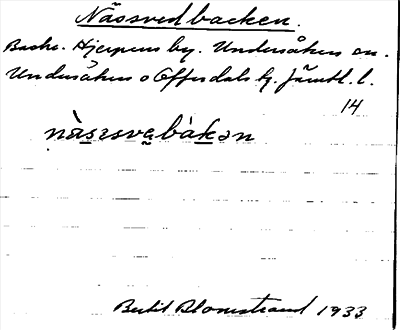 Nässvedbacken.
Backe. Hjerpens by. Undersåkers sn.
Undersåkers o Offerdals tg. Jämtl. l.
14
nàsₑsvębàkən
Bertil Blomstrand 1933